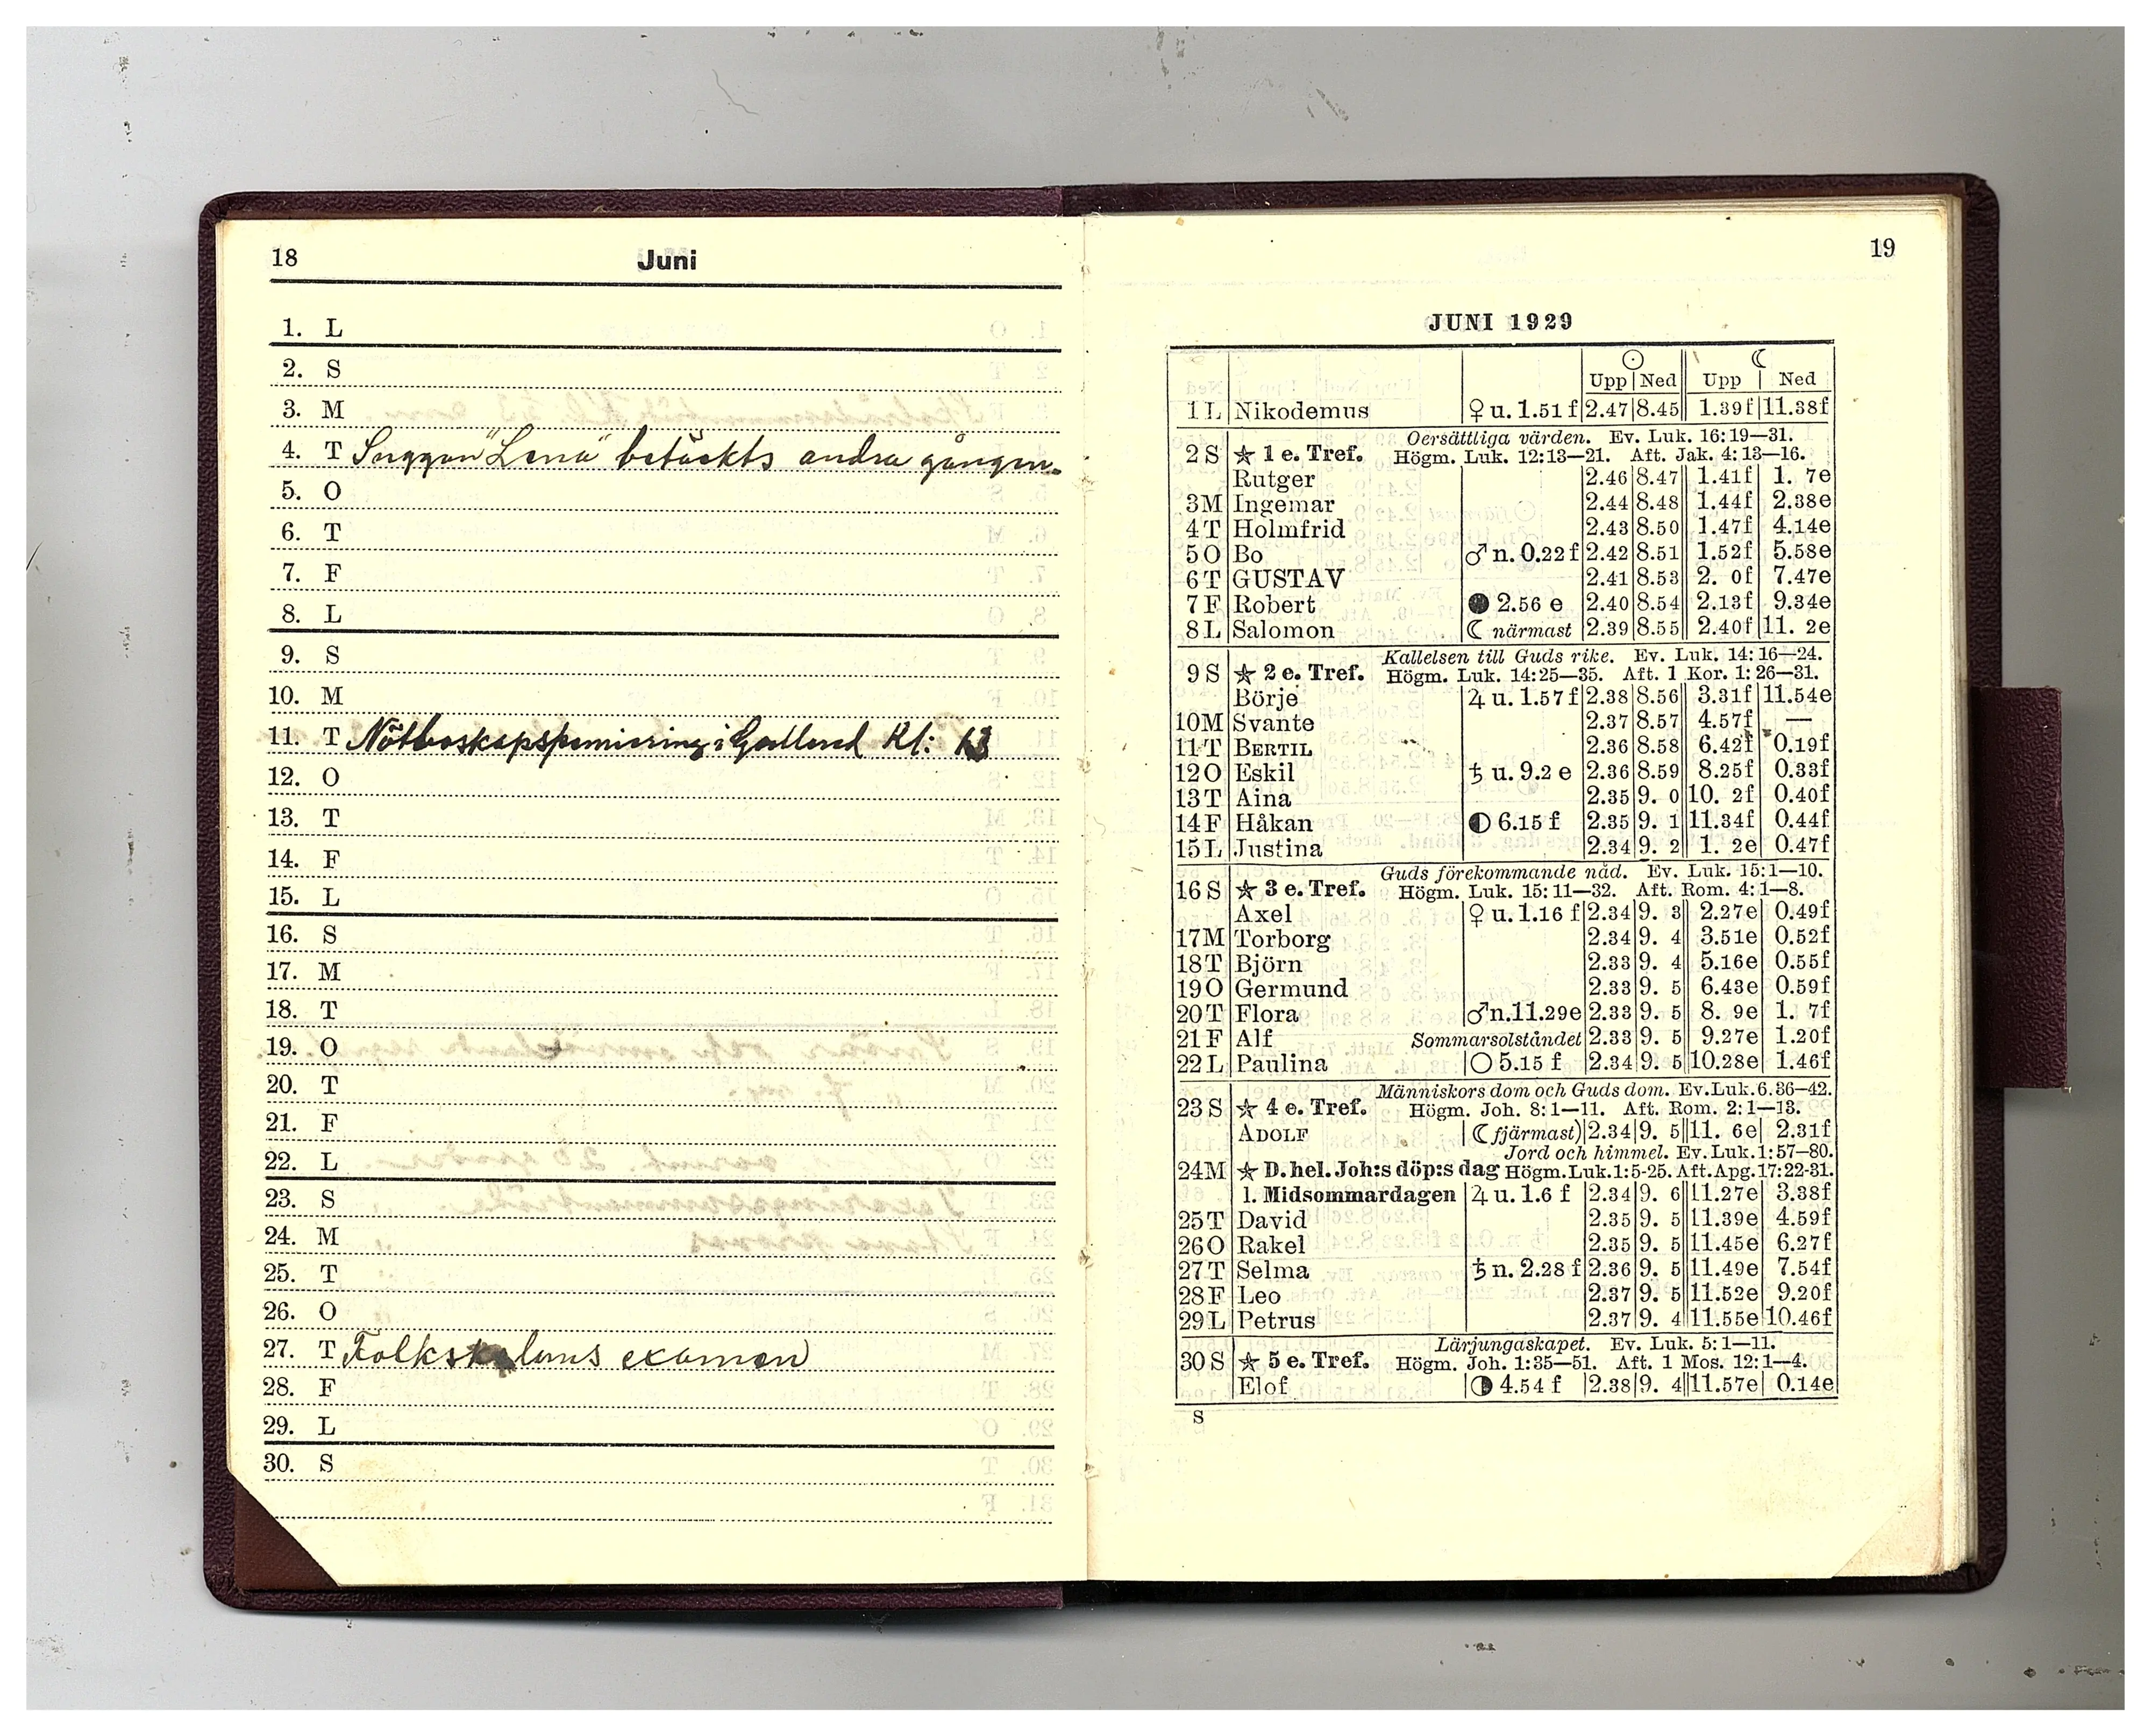 18 Juni
1. L
2. S
3. M
4. T Suggan "Lena" betäckts andra gången.
5. O
6. T
7. F
8. L
9. S
10. M
11. T Nötboskapspremiering i Gällared Kl: 13
12. O
13. T
14. F
15. L
16. S
17. M
18. T
19. O
20. T
21. F
22. L
23. S
24. M
25. T
26. O
27. T Folkskolans examen
28. F
29. L
30. S
19
JUNI 1929
☉ ☾
Upp Ned Upp Ned
1 L Nikodemus ♀ u. 1.51 f 2.47 8.45 1.39f 11.38f
Oersättliga värden. Ev. Luk. 16:19—31.
2 S ★ 1 e. Tref. Högm. Luk. 12:13—21. Aft. Jak. 4:13—16.
Rutger 2.46 8.47 1.41f 1. 7e
3 M Ingemar 2.44 8.48 1.44f 2.38e
4 T Holmfrid 2.43 8.50 1.47f 4.14e
5 O Bo ♂ n. 0.22 f 2.42 8.51 1.52f 5.58e
6 T GUSTAV 2.41 8.53 2. 0f 7.47e
7 F Robert ● 2.56 e 2.40 8.54 2.13f 9.34e
8 L Salomon ☾ närmast 2.39 8.55 2.40f 11. 2e
Kallelsen till Guds rike. Ev. Luk. 14:16—24.
9 S ★ 2 e. Tref. Högm. Luk. 14:25—35. Aft. 1 Kor. 1:26—31.
Börje ♃ u. 1.57 f 2.38 8.56 3.31f 11.54e
10 M Svante 2.37 8.57 4.57f —
11 T BERTIL 2.36 8.58 6.42f 0.19f
12 O Eskil ♄ u. 9.2 e 2.36 8.59 8.25f 0.33f
13 T Aina 2.35 9. 0 10. 2f 0.40f
14 F Håkan ◐ 6.15 f 2.35 9. 1 11.34f 0.44f
15 L Justina 2.34 9. 2 1. 2e 0.47f
Guds förekommande nåd. Ev. Luk. 15:1—10.
16 S ★ 3 e. Tref. Högm. Luk. 15:11—32. Aft. Rom. 4:1—8.
Axel ♀ u. 1.16 f 2.34 9. 3 2.27e 0.49f
17 M Torborg 2.34 9. 4 3.51e 0.52f
18 T Björn 2.33 9. 4 5.16e 0.55f
19 O Germund 2.33 9. 5 6.43e 0.59f
20 T Flora ♂ n. 11.29 e 2.33 9. 5 8. 9e 1. 7f
21 F Alf Sommarsolståndet 2.33 9. 5 9.27e 1.20f
22 L Paulina ○ 5.15 f 2.34 9. 5 10.28e 1.46f
Människors dom och Guds dom. Ev. Luk. 6.36—42.
23 S ★ 4 e. Tref. Högm. Joh. 8:1—11. Aft. Rom. 2:1—13.
ADOLF (☾ fjärmast) 2.34 9. 5 11. 6e 2.31f
Jord och himmel. Ev. Luk. 1:57—80.
24 M ★ D. hel. Joh:s döp:s dag Högm. Luk. 1:5-25. Aft. Apg. 17:22-31.
l. Midsommardagen ♃ u. 1.6 f 2.34 9. 6 11.27e 3.38f
25 T David 2.35 9. 5 11.39e 4.59f
26 O Rakel 2.35 9. 5 11.45e 6.27f
27 T Selma ♄ n. 2.28 f 2.36 9. 5 11.49e 7.54f
28 F Leo 2.37 9. 5 11.52e 9.20f
29 L Petrus 2.37 9. 4 11.55e 10.46f
Lärjungaskapet. Ev. Luk. 5:1—11.
30 S ★ 5 e. Tref. Högm. Joh. 1:35—51. Aft. 1 Mos. 12:1—4.
Elof ◑ 4.54 f 2.38 9. 4 11.57e 0.14e
S